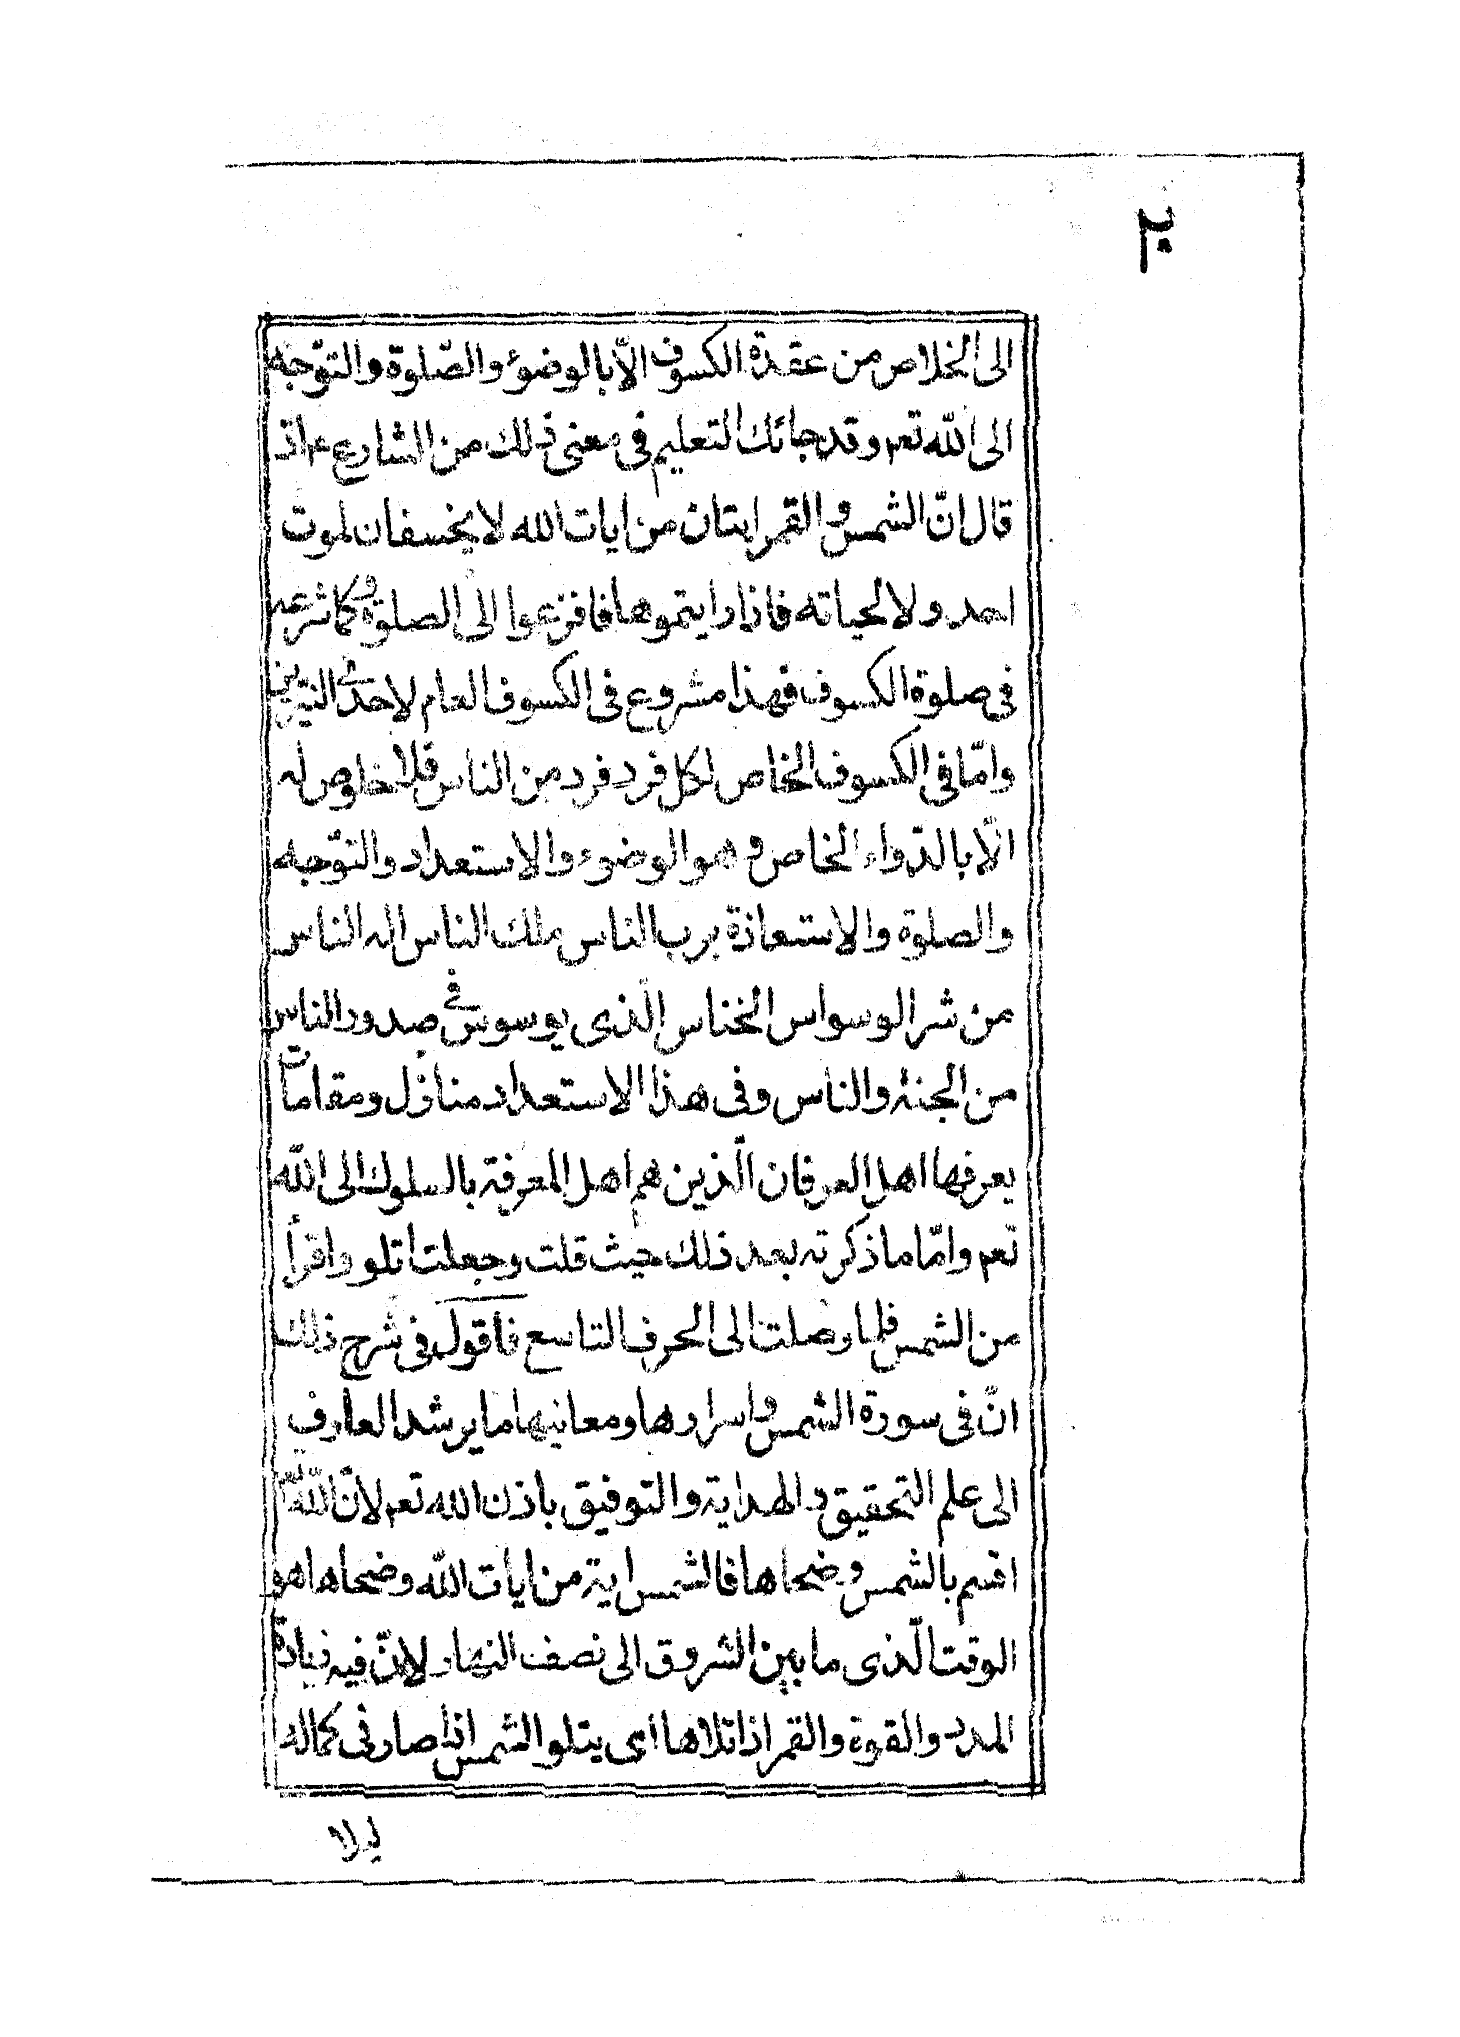 ٢٠
الى الخلاص من عقدة الكسوف الّا بالوضوء والصّلوة والتوّجه
الى اللّه تعم وقد جائك التعليم فى معنى ذلك من الشارع ع م اذ
قال انّ الشمس والقمر ايتان من ايات الله لا يخسفان لموت
احد ولا لحياته فاذا رايتموها فافزعوا الى الصلوة وكما شرعه
فى صلوة الكسوف فهذا مشروع فى الكسوف العام لاحدى النيّرين
وامّا فى الكسوف الخاص لكل فرد فرد من الناس فلا خلوص له
الّا بالدّواء الخاص وهو الوضوء والاستعداد والتوّجه
والصلوة والاستعاذة برب الناس ملك الناس اله الناس
من شر الوسواس الخناس الّذى يوسوس فى صدور الناس
من الجنة والناس وفى هذا الاستعداد منازل ومقامات
يعرفها اهل العرفان الّذين هم اهل المعرفة بالسلوك الى اللّه
تعم وامّا ما ذكرته بعد ذلك حيث قلت وجعلت اتلو واقرأ
من الشمس فلما وصلت الى الحرف التاسع فأقول فى شرح ذلك
انّ فى سورة الشمس واسرارها ومعانيها ما يرشد العارف
الى علم التحقيق والهداية والتوفيق باذن الله تعم لانّ اللّه
اقسم بالشمس وضحاها فالشمس اية من ايات اللّه وضحاها هو
الوقت الّذى ما بين الشروق الى نصف النهار لانّ فيه زيادة
المدد والقوة والقمر اذا تلاها اى يتلو الشمس اذا صار فى كماله
ليلا